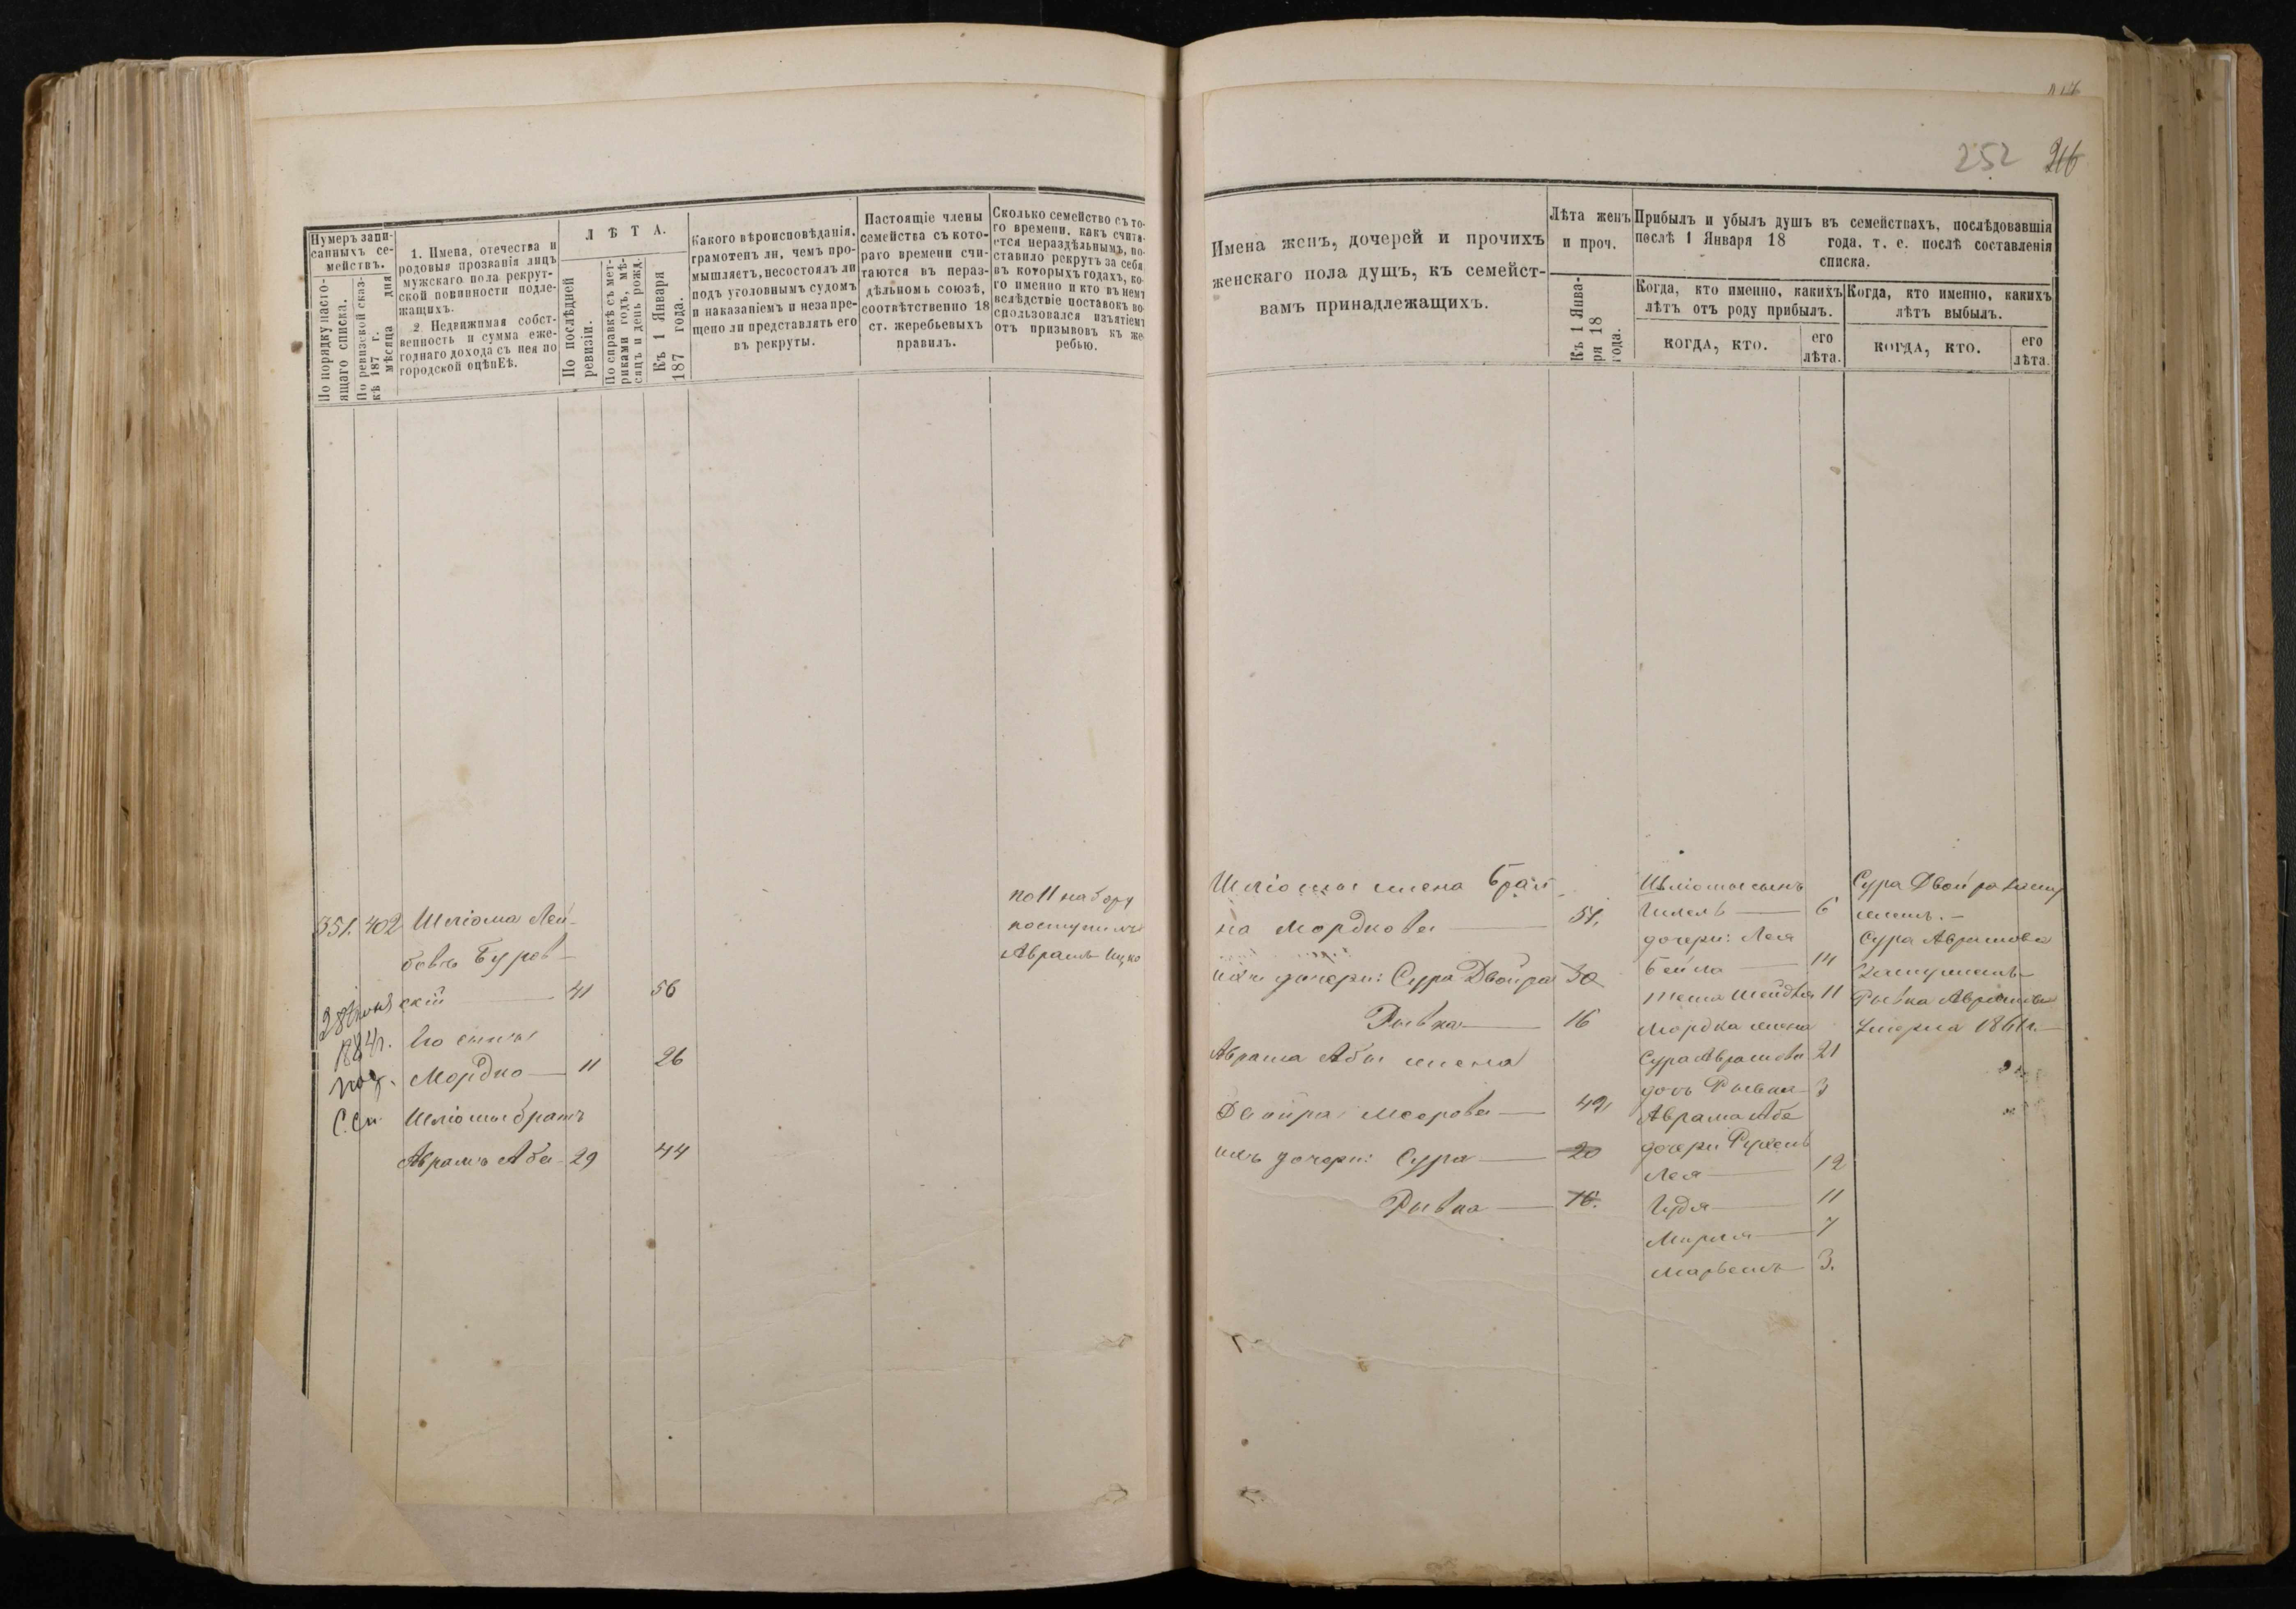 252 216
Нумеръ запи-
санныхъ се-
мействъ.
По порядку насто-
ящаго списка.
По ревизской сказ-
кѣ 187 г.
мѣсяца дня
1. Имена, отечества и
родовыя прозванія лицъ
мужскаго пола рекрут-
ской повинности подле-
жащихъ.
2. Недвижимая собст-
венность и сумма еже-
годнаго дохода съ нея по
городской оцѣнЕѣ.
Л Ѣ Т А.
По послѣдней
ревизіи.
По справкѣ съ мет-
риками годъ, мѣ-
сяцъ и день рожд.
Къ 1 Января
187 года.
Какого вѣроисповѣданія,
грамотенъ ли, чемъ про-
мышляетъ, несостоялъ ли
подъ уголовнымъ судомъ
и наказаніемъ и незапре-
щено ли представлять его
въ рекруты.
Настоящіе члены
семейства съ кото-
раго времени счи-
таются въ нераз-
дѣльномъ союзѣ,
соотвѣтственно 18
ст. жеребьевыхъ
правилъ.
Сколько семейство съ то-
го времени, какъ счита-
ется нераздѣльнымъ, по-
ставило рекрутъ за себя,
въ которыхъ годахъ, ко-
го именно и кто въ немъ
вслѣдствіе поставокъ во-
спользовался изъятіемъ
отъ призывовъ къ же-
ребью.
351. 402 Шліома Лей-
бовъ Буров-
скій 41 56
28 Іюня
1884г.
Его сынъ
Мордко 11 26
С.Сп. Шліомы братъ
Абрамъ Аба 29 44
по 11 набору
поступилъ
Абрамъ Ицко
Имена женъ, дочерей и прочихъ
женскаго пола душъ, къ семейст-
вамъ принадлежащихъ.
Лѣта женъ
и проч.
Къ 1 Янва-
ря 18
года.
Прибылъ и убылъ душъ въ семействахъ, послѣдовавшія
послѣ 1 Января 18 года, т. е. послѣ составленія
списка.
Когда, кто именно, какихъ
лѣтъ отъ роду прибылъ.
КОГДА, КТО.
его
лѣта.
Когда, кто именно, какихъ
лѣтъ выбылъ.
КОГДА, КТО.
его
лѣта.
Шліомы жена Брай
на Мордкова 51.
ихъ дочери: Сура Двойра 30
Рывка 16
Абрама Абы жена
Двойра Меерова 49
ихъ дочери: Сура 20
Рывка 16.
Шліомы сынъ
6
дочери: Лея
Бейла 14
11
Мордка жена
Сура Абрамова 21
дочь Рывка 3
Абрама Аба
дочери
Лея 12
11
7
3.
Сура Двойра
Сура Абрамова
Замужемъ
Рывка Абрамова
Умерла 1861г.